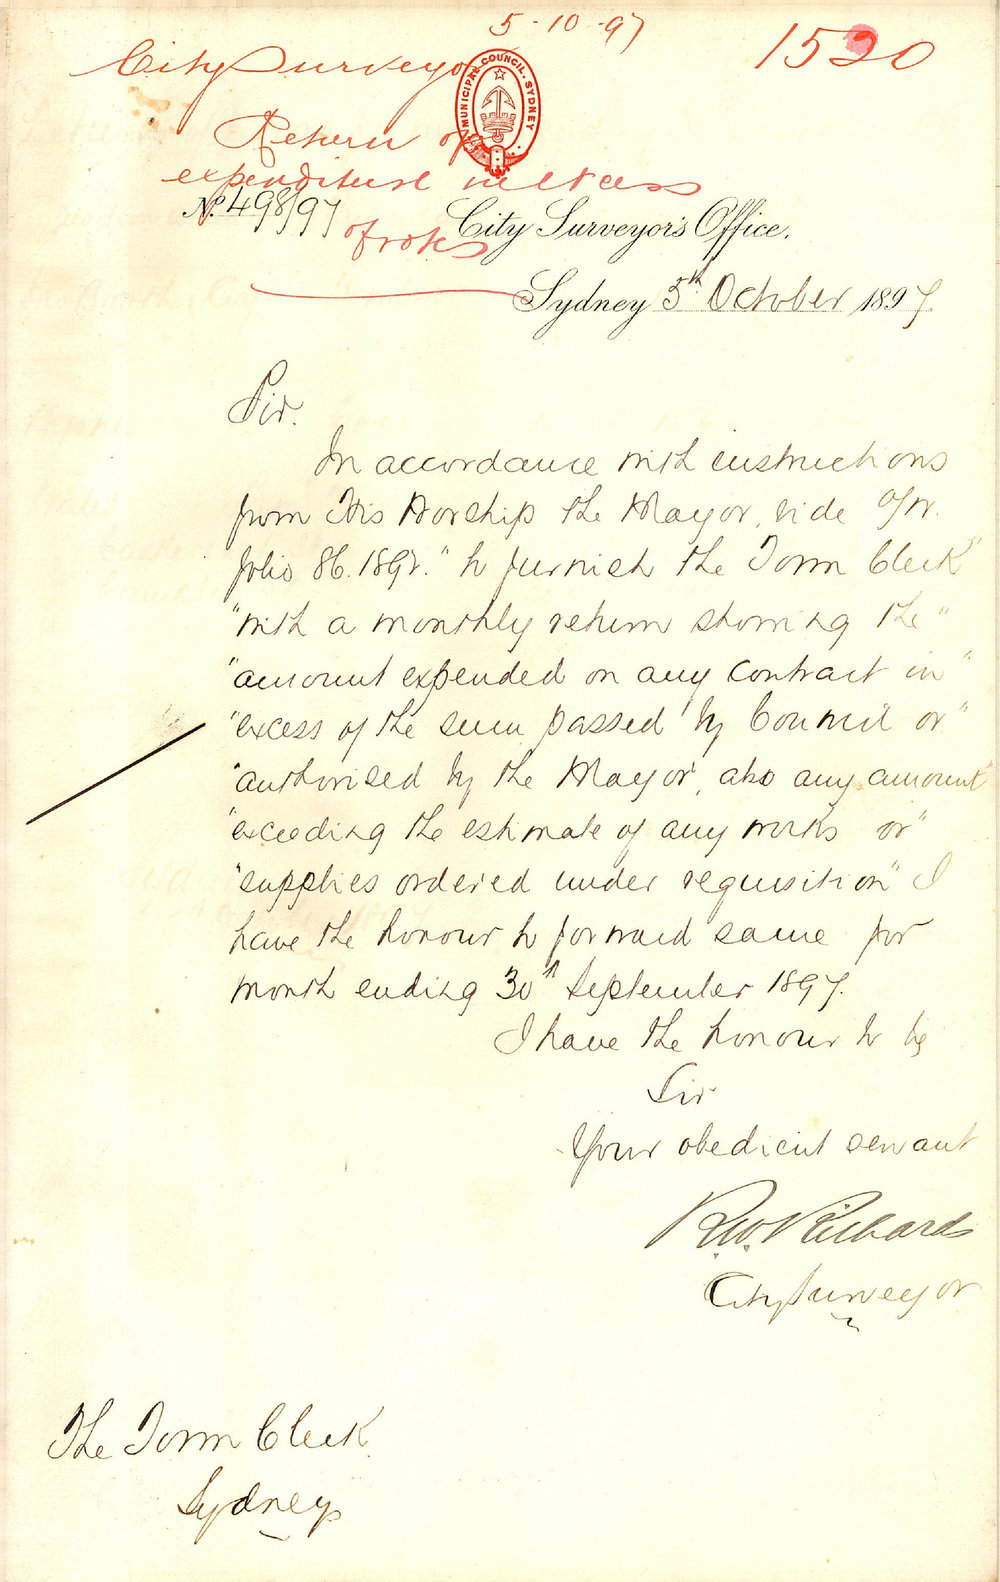 5-10-97
1520
City Surveyor
MUNICIPAL COUNCIL. SYDNEY
Return of
expenditure in excess
of votes
No. 498/97
City Surveyor's Office.
Sydney 5th October 1897.
Sir.
In accordance with instructions
from His Worship the Mayor, vide
folio 86. "to furnish the Town Clerk"
"with a monthly return showing the"
"amount expended on any contract in"
"excess of the sum passed by Council or"
"authorised by the Mayor, also any amount
"exceeding the estimate of any works or"
"supplies ordered under requisition" I
have the honour to forward same for
month ending 30th September 1897.
I have the honour to be
Sir
Your obedient servant
R.W. Richards
City Surveyor
The Town Clerk
Sydney